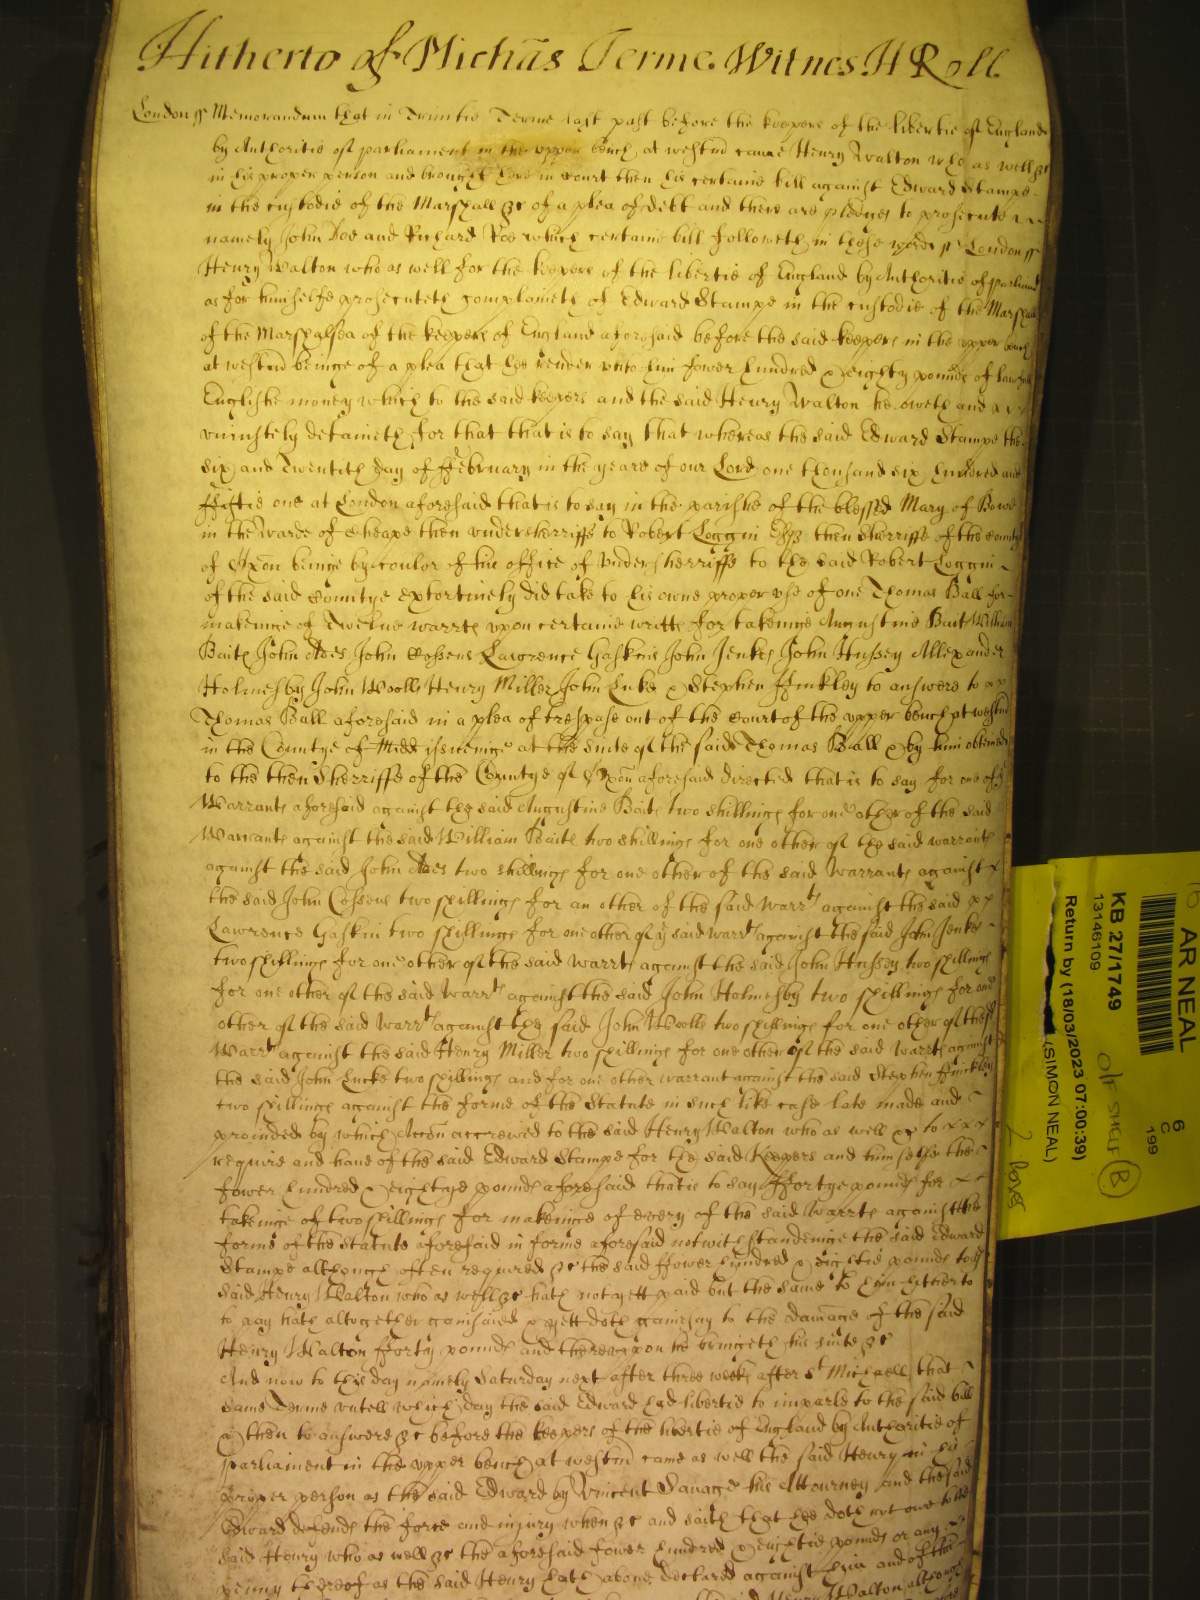 Hitherto of Michās Terme Witnes H Roll
London ss Memorandum that in Trinitie Terme last past before the keepers of the libertie of England
by Authoritie of parliament in the upper bench at westm̄ came Henry Walton who as well &c
in his proper person and brought here in court then his certaine bill against Edward Stampe
in the custodie of the Marshall &c of a plea of debt and there are pledges to prosecute
namely John Doe and Richard Roe which certaine bill followeth in these words ss London ss
Henry Walton who as well for the keepers of the libertie of England by Authoritie of parliamt
as for himselfe prosecuteth complaineth of Edward Stampe in the custodie of the Marshall
of the Marshalsea of the keepers of England aforesaid before the said keepers in the upper bench
at westm̄ beinge of a plea that hee render unto him fower hundred & eighty pounds of lawfull
Englishe money which to the said keepers and the said Henry Walton he oweth and
uniustely detaineth for that that is to say that whereas the said Edward Stampe the
six and Twentith day of ffebruary in the yeare of our Lord one thousand six hundred and
ffiftie one at London aforesaid that is to say in the parishe of the blessed Mary of Bowe
in the Warde of Cheape then undersherriffe to Robert Loggin Esqz then Sherriffe of the County
of Oxon beinge by coulor of his office of undersherriffe to the said Robert Loggin
of the said Countye extortinely did take to his owne proper use of one Thomas Ball for
makeinge of Twelve warrts upon certaine writts for takeinge Augustine Bait William
Baite John Aves John Cossens Lawrence Gaskin John Jenkes John Hussey Allexander
Holmesby John Woolls Henry Miller John Lucke & Stephen ffinkley to answere to
Thomas Ball aforesaid in a plea of trespasse out of the court of the upper bench at westm̄
in the Countye of Midd issueinge at the suite of the said Thomas Ball & by him obteined
to the then Sherriffe of the Countye of Oxon aforesaid directed that is to say for one of ye
Warrants aforesaid against the said Augustine Baite two shillings for one other of the said
Warrants against the said William Baite two shillings for one other of the said warrants
against the said John Aves two shillings for one other of the said Warrants against
the said John Cossens two shillings for an other of the said warrts against the said
Lawrence Gaskin two shillings for one other of ye said warrts against the said John Jenkes
two shillings for one other of the said warrts against the said John Hussey two shillings
for one other of the said warrts against the said John Holmesby two shillings for one
other of the said warrts against the said John Woolls two shillings for one other of the sd
Warrts against the said Henry Miller two shillings for one other of the said warrts against
the said John Lucke two shillings and for one other warrant against the said Stephen ffinkley
two shillings against the forme of the Statute in such like case late made and
provided by which Accōn accrewed to the said Henry Walton who as well &c to
require and have of the said Edward Stampe for the said Keepers and himselfe the
fower hundred & eightye pounds aforesaid that is to say ffortye pounds for
takeinge of two shillings for makeinge of every of the said warrts against the
forme of the Statute aforesaid in forme aforesaid notwithstandeinge the said Edward
Stampe although often required &c the said ffower hundred & eightie pounds to the
said Henry Walton who as well &c hath not yett paid but the same to him hitherto
to pay hath altogether gainsaied & yett doth gainsay to the damage of the said
Henry Walton fforty pounds and thereupon he bringeth his suite &c
And now to this day namely Saturday next after three weeks after St Michaell that
same Terme untill which day the said Edward had libertie to imparle to the said bill
& then to answere &c before the keepers of the libertie of England by Authoritie of
parliament in the upper bench at westm̄ came as well the said Henry in his
proper person as the said Edward by Vincent Savage his Attourney and the said
Edward defends the force and injury when &c and saith that hee doth not owe to the
said Henry who as well &c the aforesaid fower hundred & eightie pounds or any
penny thereof as the said Henry hath above declared against him and of this
Henry Walton
AR NEAL
KB 27/1749
13146109
Return by (18/03/2023 07:00:39)
(SIMON NEAL)
6
C
199
O/F SHELF
B
2 boxes